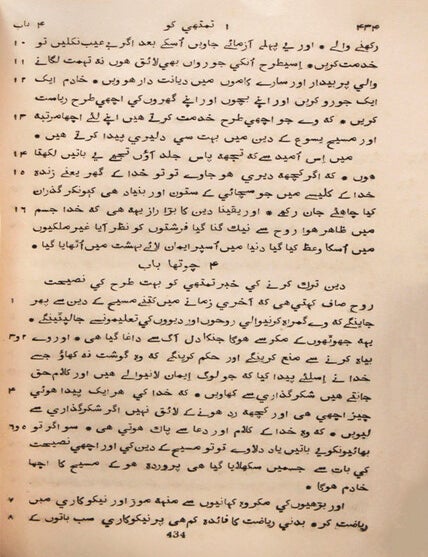 ۴۳۴ ۱ تمتھي کو ۴ باب
رکھنے والے * اور یے پہلے آزمائے جاویں اُسکے بعد اگر بے عیب نکلیں تو ۱۰
خدمت کریں * اِسیطرح اُنکي جورواں بھي لائق هوں نہ تهمت لگانے ۱۱
والي پر بیدار اور سارے کاموں میں دیانت دار هوویں * خادم ایک ۱۲
ایک جورو کریں اور اپنے بچوں اور اپنے گھروں کي اچھي طرح ریاست
کریں * کہ وے جو اچھي طرح خدمت کرتے هیں اپنے لئے اچھا مرتبہ ۱۳
اور مسیح یسوع کے دین میں بہت سي دلیري پیدا کرتے هیں *
میں اِس اُمید سے کہ تجھہ پاس جلد آؤں تجھے یے باتیں لکھتا ۱۴
هوں * کہ اگر کچھہ دیري هو جاوے تو تو خدا کے گھر یعنے زندہ ۱۵
خدا کے کلیسے میں جو سچائي کے ستون اور بنیاد هي کیونکر گذران
کیا چاهئے جان رکھے * اور یقیناً دین کا بڑا راز یہہ هي کہ خدا جسم ۱۶
میں ظاهر هوا روح سے نیک گنا گیا فرشتوں کو نظر آیا غیر ملکیوں
میں اُسکا وعظ کیا گیا دنیا میں اُسپر ایمان لائے بہشت میں اُٹھایا گیا *
۴ چوتھا باب
دین ترک کرنے کي خبر تمتھي کو بہت طرح کي نصیحت
روح صاف کہتي هي کہ آخري زمانے میں کتنے مسیح کے دین سے پھر ۱
جاینگے کہ وے گمراہ کرنیوالي روحوں اور دیووں کي تعلیمونسے جا لپٹینگے *
یہہ جھوٹھوں کے مکر سے هوگا جنکا دل آگ سے داغا گیا هي * اور وے ۲و۳
بیاہ کرنے سے منع کرینگے اور حکم کرینگے کہ وہ گوشت نہ کھاؤ جسے
خدا نے اِسلئے پیدا کیا کہ جو لوگ ایمان لانیوالے هیں اور کلام حق
جانتے هیں شکرگذاري سے کھاویں * کہ خدا کي هر ایک پیدا هوئي ۴
چیز اچھي هي اور کچھہ رد هونے کے لائق نہیں اگر شکرگذاري سے
لیویں * کہ وہ خدا کے کلام اور دعا سے پاک هوتي هي * سو اگر تو ۵و۶
بھائیونکو یے باتیں یاد دلاوے تو تو مسیح کے دین کي اور اچھي نصیحت
کي بات سے جسمیں سکھلایا گیا هي پروردہ هو کے مسیح کا اچھا
خادم هوگا *
اور بڑھیوں کي مکروہ کہانیوں سے منهہ موڑ اور نیکوکاري میں ۷
ریاضت کر * بدني ریاضت کا فائدہ کم هي پر نیکوکاري سب باتوں کے ۸
434